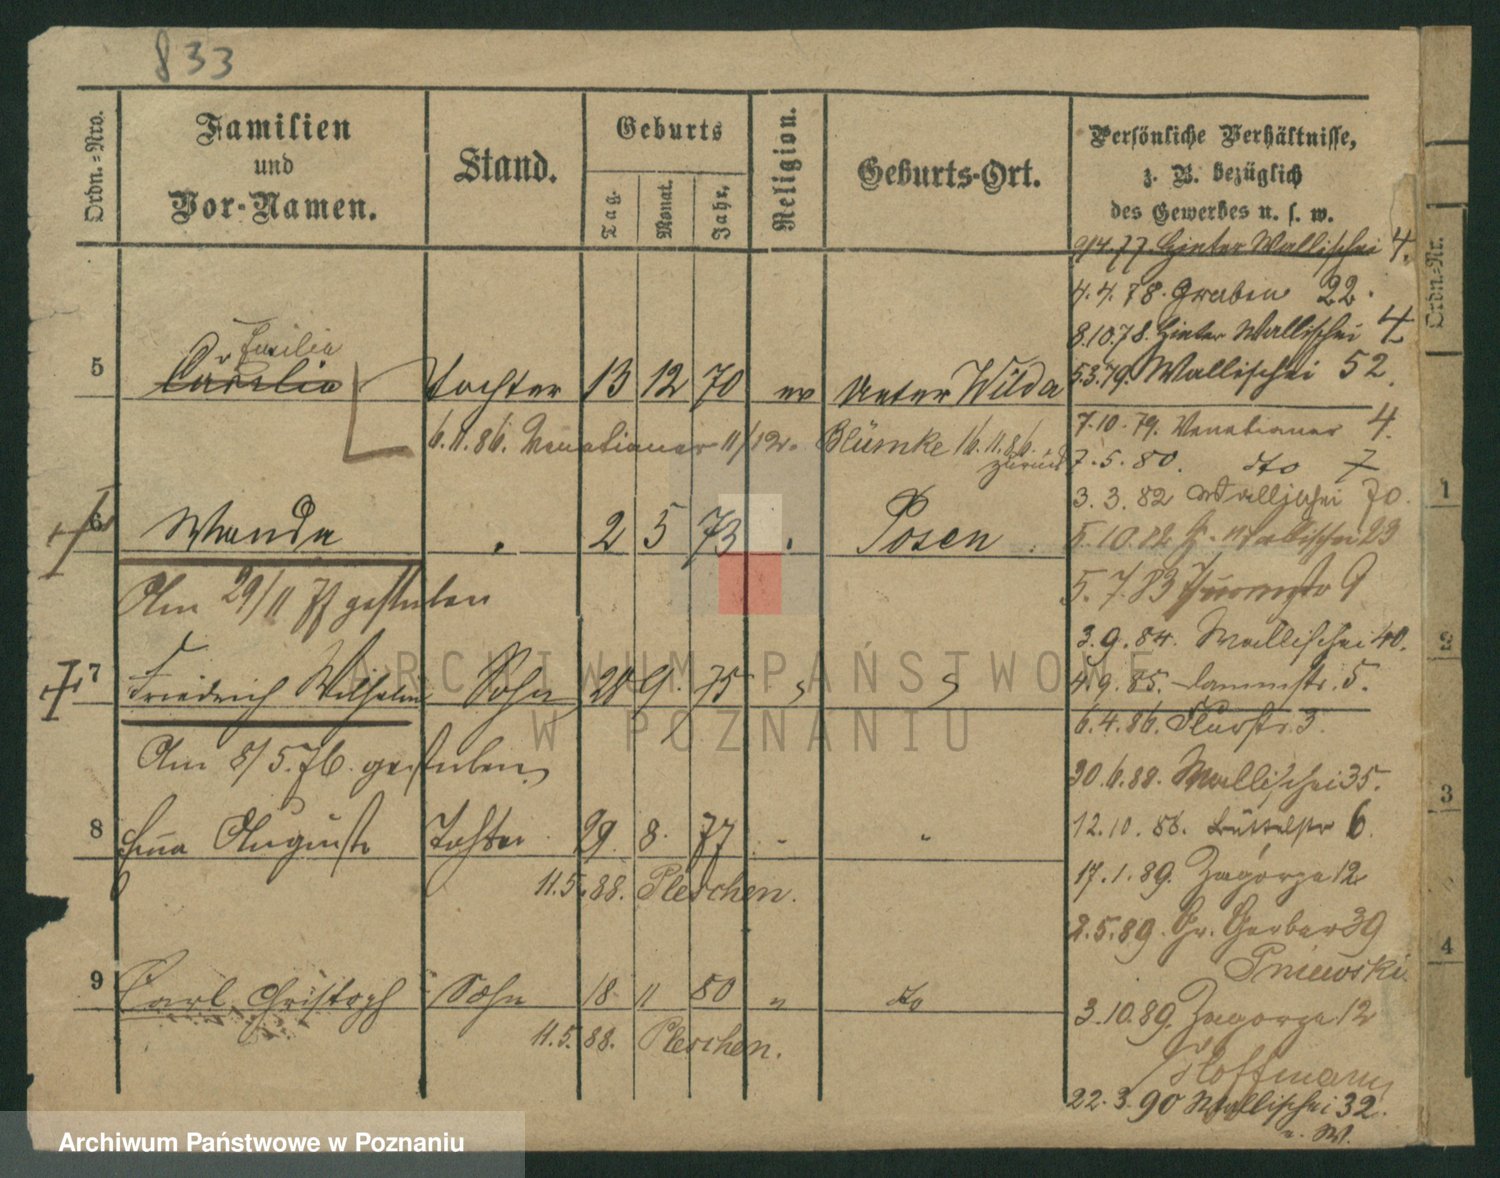 833
Ordn.=Nro.
Familien
und
Vor-Namen.
Stand.
Geburts
Tag.
Monat.
Jahr.
Religion.
Geburts-Ort.
Persönliche Verhältnisse,
z. B. bezüglich
des Gewerbes u. s. w.
Hinter Wallischei 4.
4.4.78. Graben 22.
8.10.78. Hinter Wallischei 4
5 Tochter 13 12 70 ev Unter Wilda
5.3.79. Wallischei 52.
6.11.86. Venetianer 11/12. Blümke 16.11.86. zurück
7.10.79. Venetianer 4.
7.5.80. dto 7
6 Wanda 2 5 73 Posen
3.3.82 Wallischei 70.
5.10.82 H. Wallischei 23
Am 29/11 gestorben
5.7.83 9
3.9.84. Wallischei 40.
7 Friedrich Wilhelm Sohn 28 9. 75
4.9.85. Dammstr. 5.
6.4.86. Flurstr. 3.
Am 8/5.76. gestorben
30.6.88. Wallischei 35.
8 Auguste Tochter 29. 8. 77 "
12.10.88. Büttelstr 6.
11.5.88. Pleschen.
17.1.89. Zagórze 12
2.5.89. Gr. Gerber 39
Pniewski
9 Carl Christoph Sohn 18 11 80 " dto
3.10.89. Zagorze 12
11.5.88. Pleschen.
Hoffmann
22.3.90 Wallischei 32.
Ordn.=Nr.
1
2
3
4
ARCHIWUM PAŃSTWOWE
W POZNANIU
Archiwum Państwowe w Poznaniu